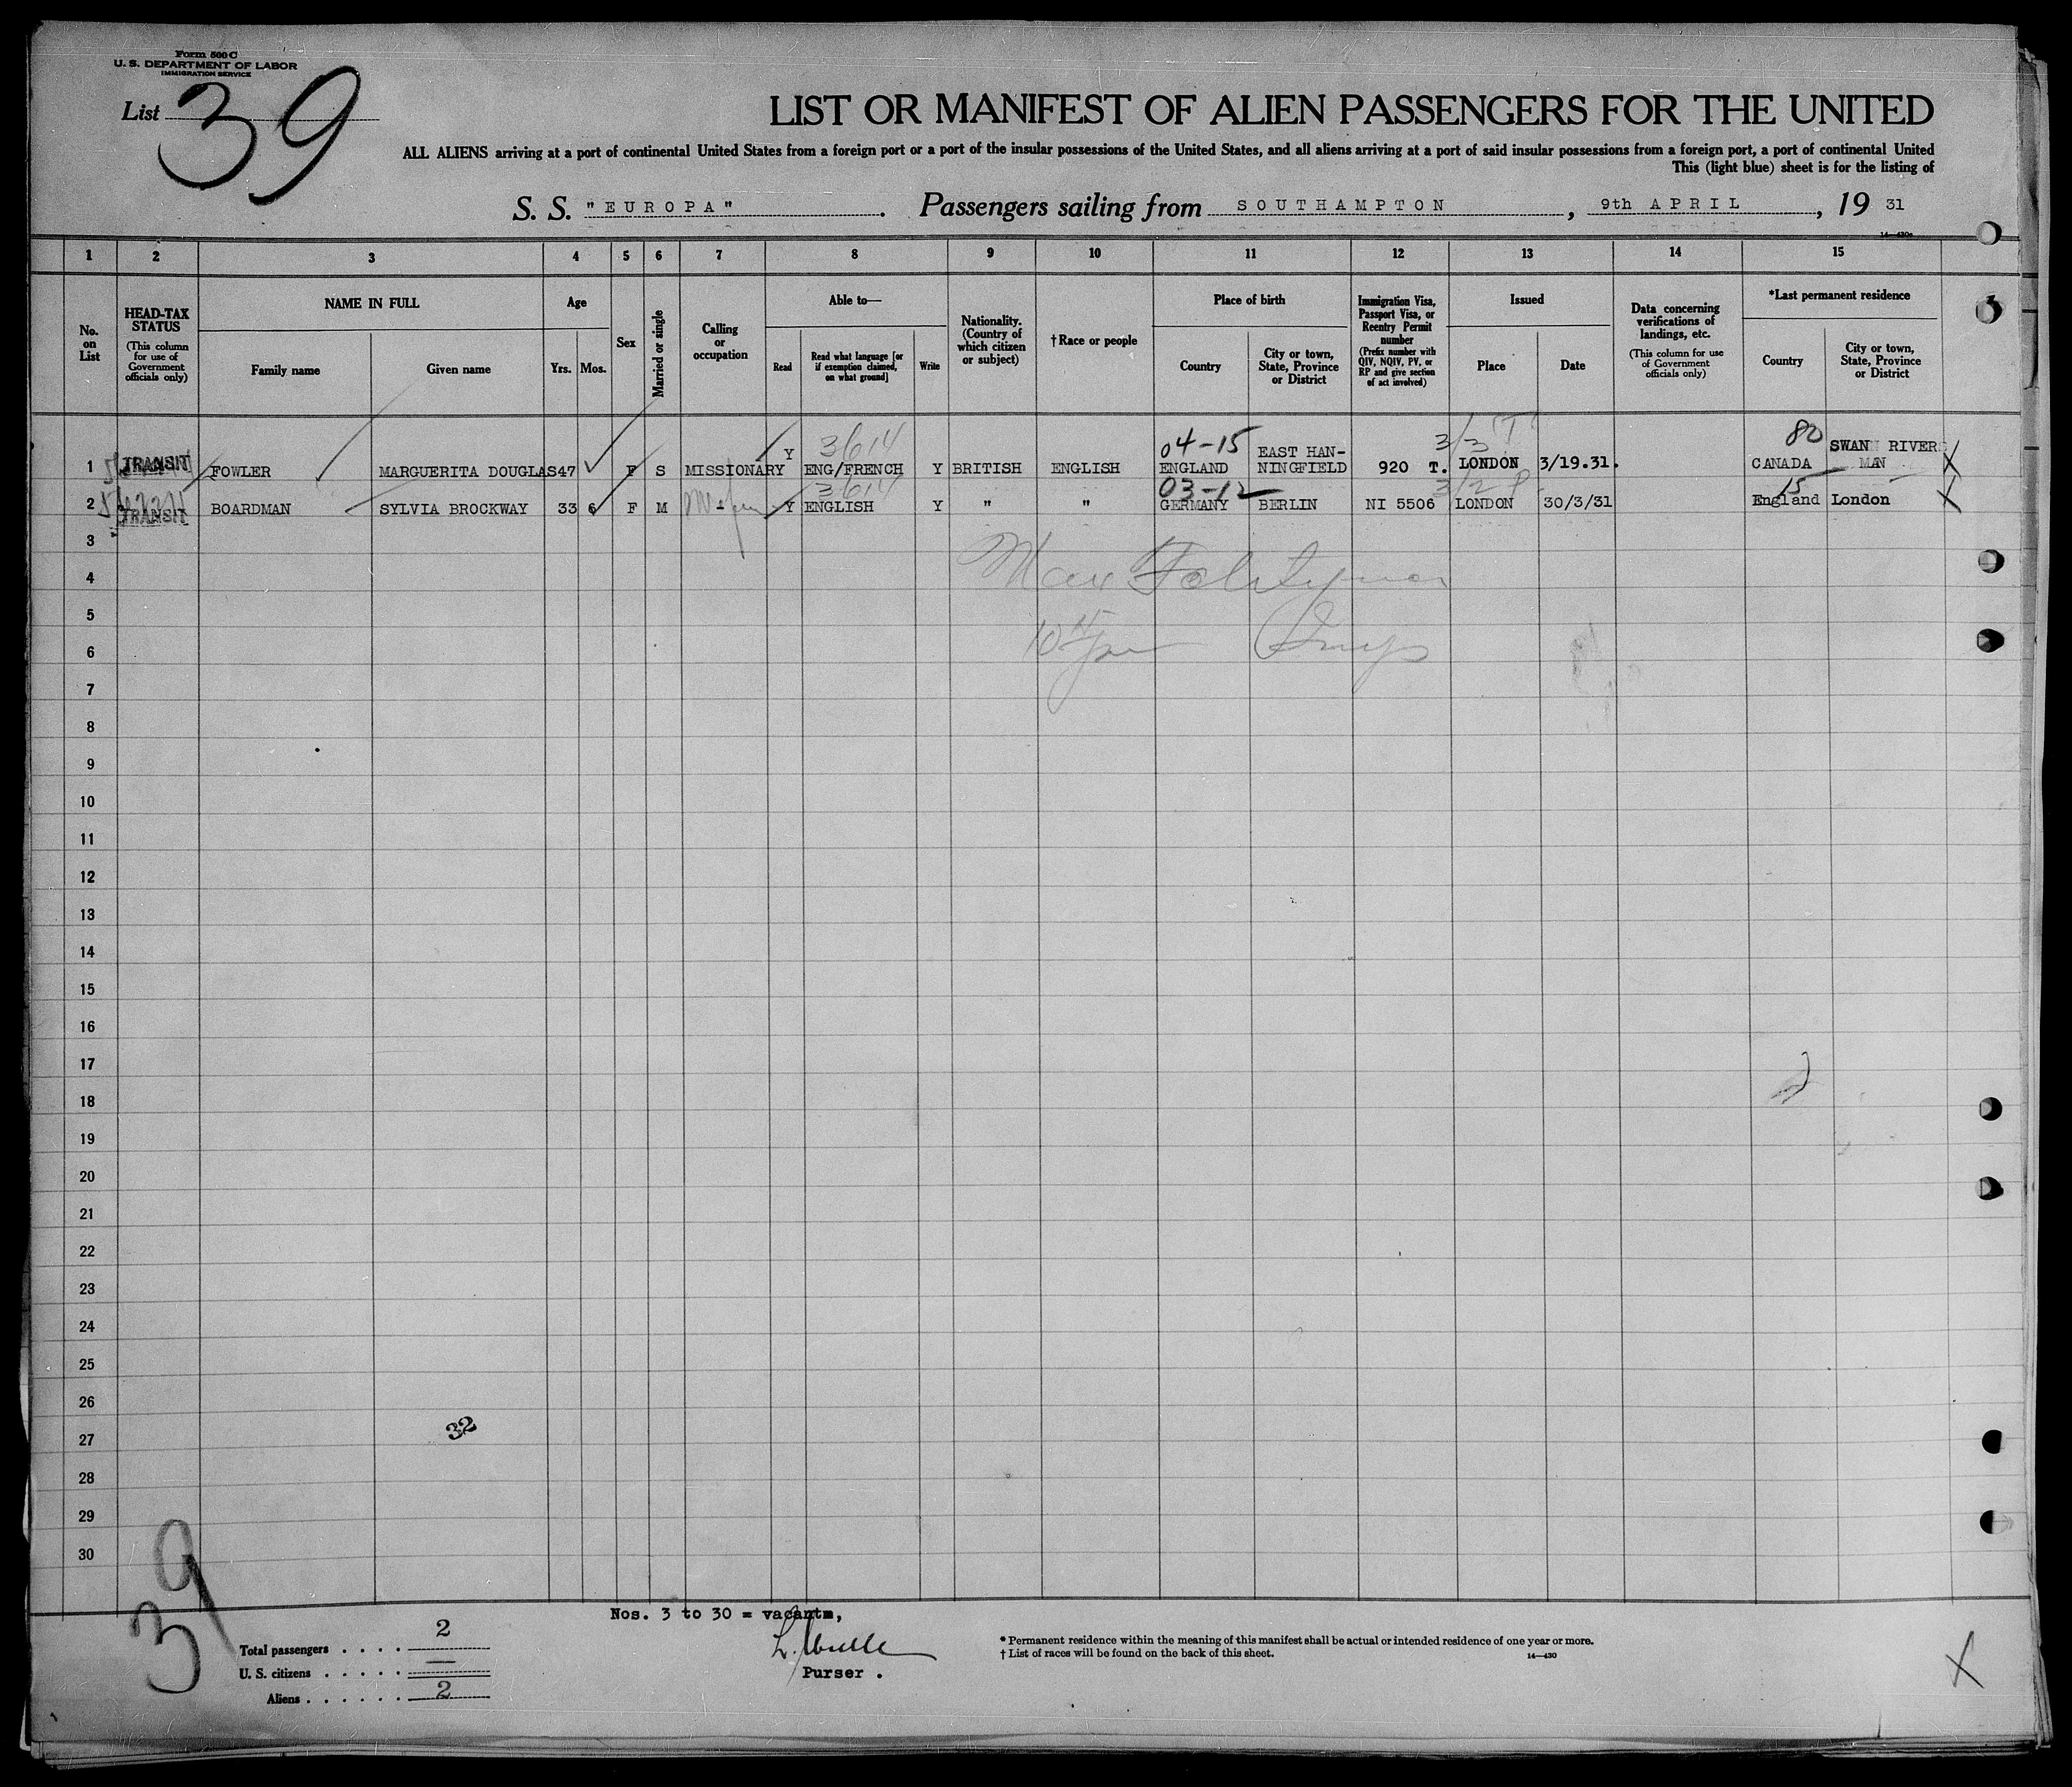 Form 500 C
U. S. DEPARTMENT OF LABOR
IMMIGRATION SERVICE
List 39
LIST OR MANIFEST OF ALIEN PASSENGERS FOR THE UNITED
ALL ALIENS arriving at a port of continental United States from a foreign port or a port of the insular possessions of the United States, and all aliens arriving at a port of said insular possessions from a foreign port, a port of continental United
This (light blue) sheet is for the listing of
S. S. "EUROPA". Passengers sailing from SOUTHAMPTON, 9th APRIL, 19 31
14—430a
1 2 3 4 5 6 7 8 9 10 11 12 13 14 15
No. on List
HEAD-TAX STATUS
(This column for use of Government officials only)
NAME IN FULL
Family name
Given name
Age
Yrs. Mos.
Sex
Married or single
Calling or occupation
Able to—
Read
Read what language [or if exemption claimed, on what ground]
Write
Nationality. (Country of which citizen or subject)
†Race or people
Place of birth
Country
City or town, State, Province or District
Immigration Visa, Passport Visa, or Reentry Permit number
(Prefix number with QIV, NQIV, PV, or RP and give section of act involved)
Issued
Place
Date
Data concerning verifications of landings, etc.
(This column for use of Government officials only)
*Last permanent residence
Country
City or town, State, Province or District
3614 04-15 3/3 "T" 80
1 TRANSIT FOWLER MARGUERITA DOUGLAS 47 F S MISSIONARY Y ENG/FRENCH Y BRITISH ENGLISH ENGLAND EAST HAN-NINGFIELD 920 T. LONDON 3/19.31. CANADA SWAN RIVER MAN X
3614 03-12 3/2 P 15
2 TRANSIT BOARDMAN SYLVIA BROCKWAY 33 6 F M Y ENGLISH Y " " GERMANY BERLIN NI 5506 LONDON 30/3/31 England London X
3
4 Max
5
6
7
8
9
10
11
12
13
14
15
16
17
18
19
20
21
22
23
24
25
26
27
32
28
29
30
39
Nos. 3 to 30 = vacant,
Total passengers . . . . 2
U. S. citizens . . . . . —
Aliens . . . . . . 2
Purser .
* Permanent residence within the meaning of this manifest shall be actual or intended residence of one year or more.
† List of races will be found on the back of this sheet.
14—430
X